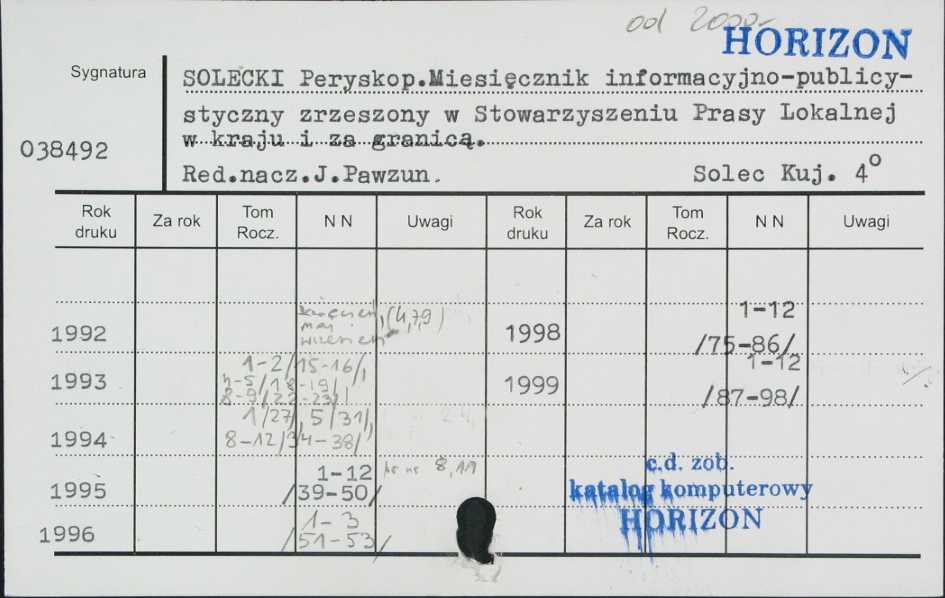 od 2000-
HORIZON
Sygnatura
SOLECKI Peryskop.Miesięcznik informacyjno-publicy-
styczny zrzeszony w Stowarzyszeniu Prasy Lokalnej
w kraju i za granicą.
038492
Red.nacz.J.Pawzun. Solec Kuj. 4°
Rok druku Za rok Tom Rocz. N N Uwagi Rok druku Za rok Tom Rocz. N N Uwagi
1992 kwiecień, maj wrzesień (4,7,9) 1998 1-12 /75-86/
1993 1-2/15-16/, 4-5/18-19/, 8-9/22-23/ 1999 1-12 /87-98/
1994 1/27/, 5/31/, 8-12/34-38/
1995 1-12 /39-50/ nr 8, 11
1996 1-3 /51-53/
c.d. zob.
katalog komputerowy
HORIZON